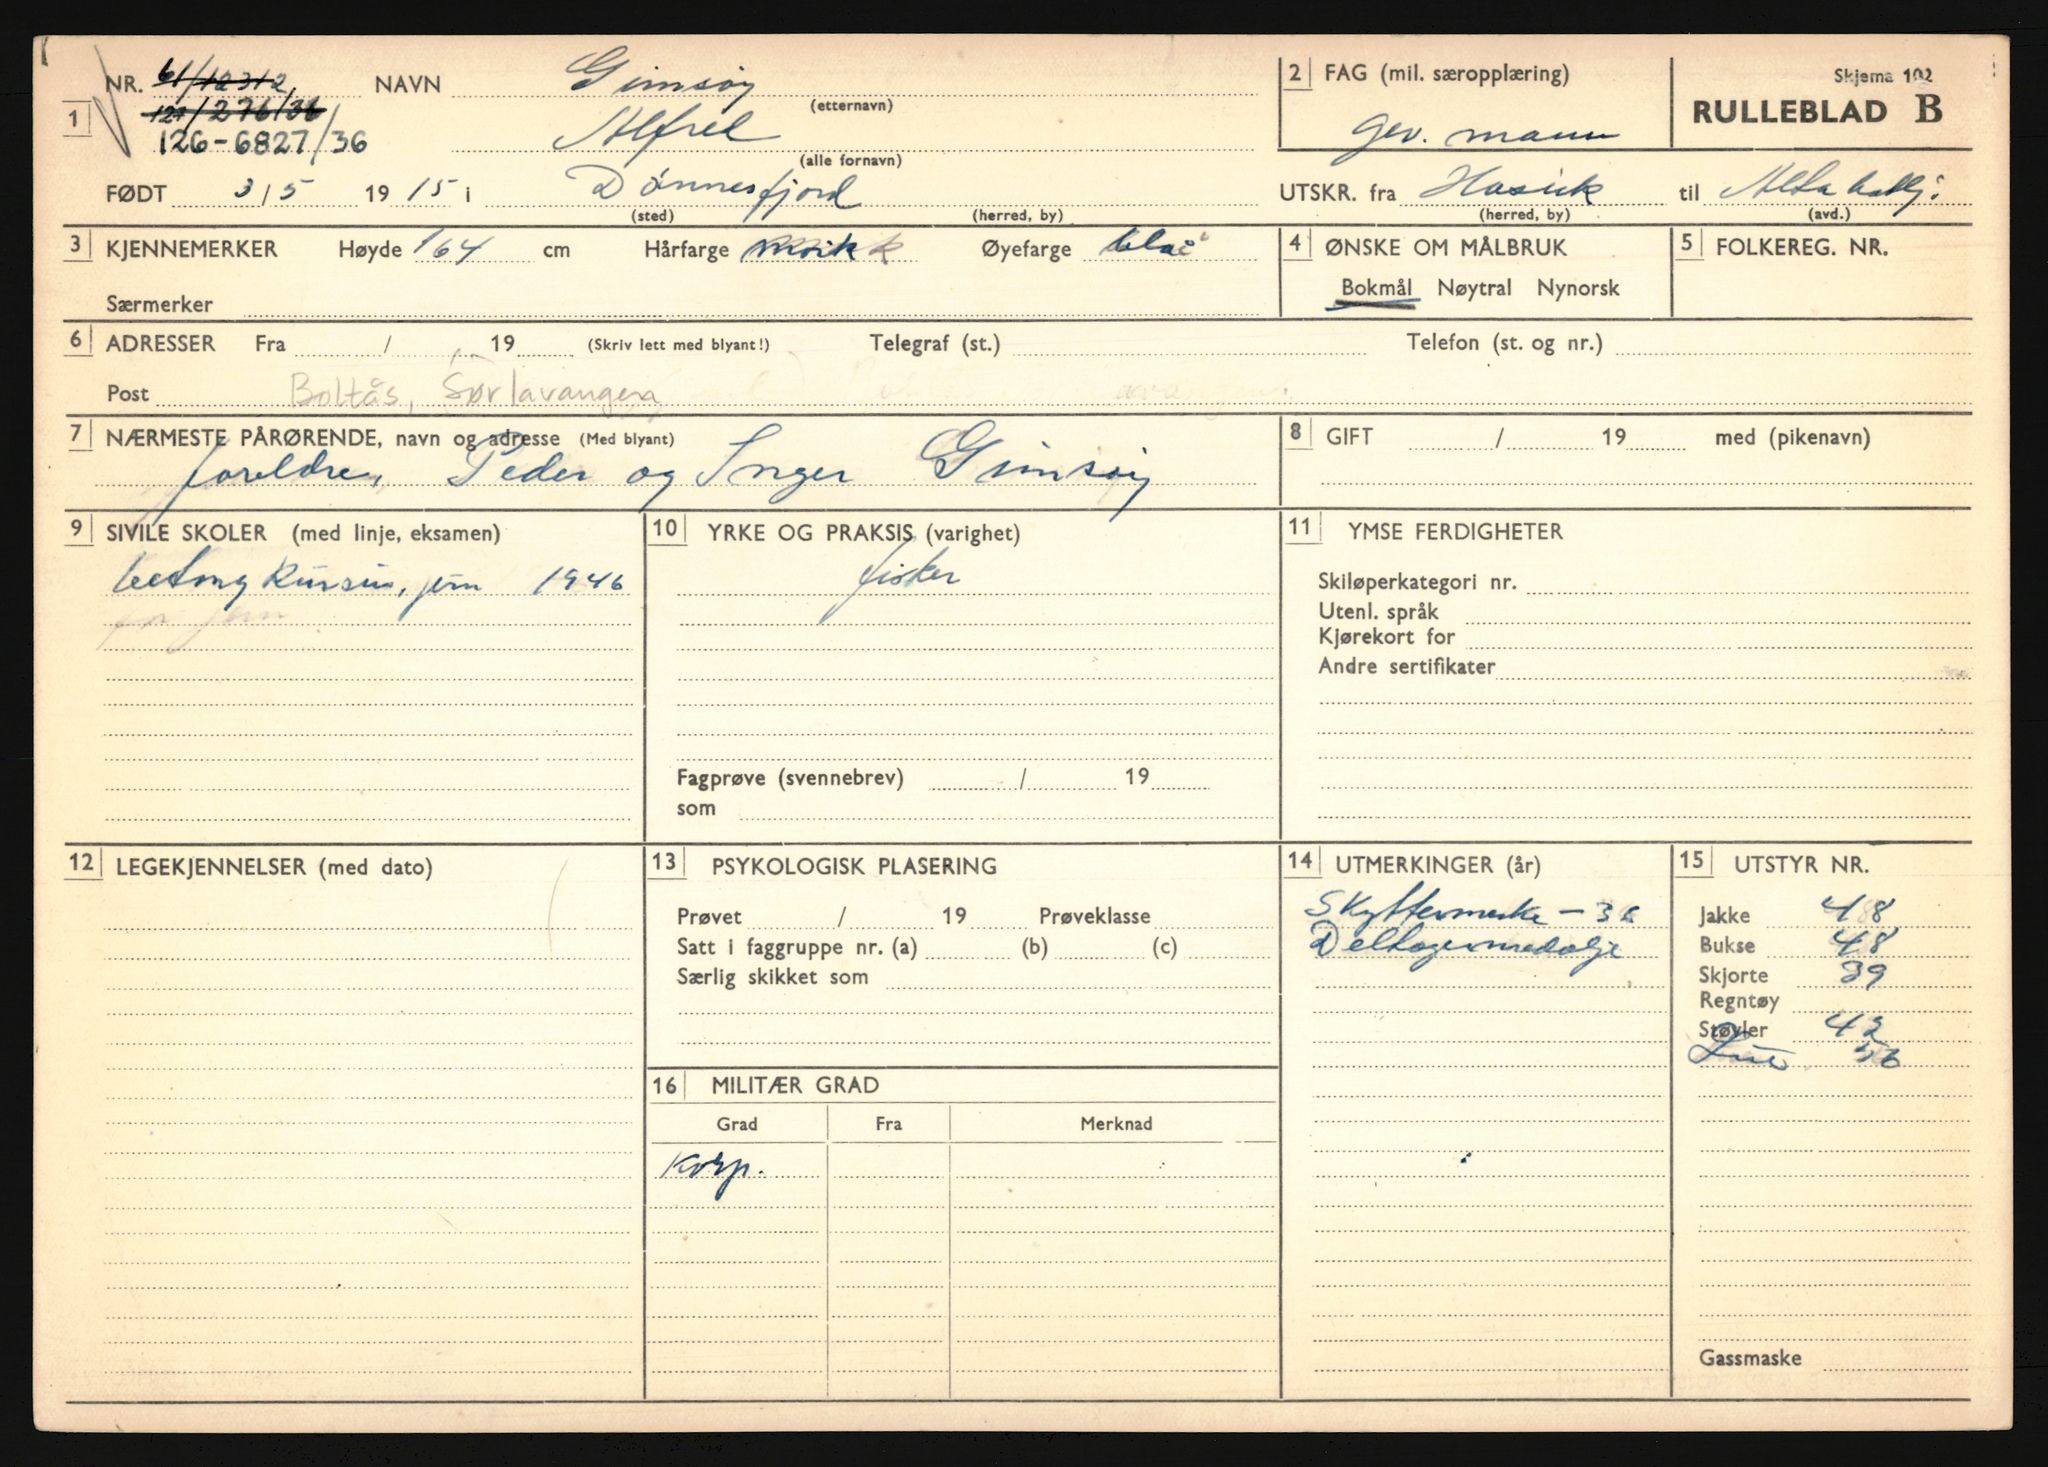 NR. 61/12312, NAVN Gimsøy
(etternavn)
1 121/276/36
126-6827/36 Alfred
(alle fornavn)
FØDT 3/5 1915 i Dønnesfjord
(sted) (herred, by)
2 FAG (mil. særopplæring)
Gev. mann
Skjema 102
RULLEBLAD B
UTSKR. fra Hasvik til Alta batlj.
(herred, by) (avd.)
3 KJENNEMERKER Høyde 164 cm Hårfarge mørk Øyefarge blå
Særmerker
4 ØNSKE OM MÅLBRUK
Bokmål Nøytral Nynorsk
5 FOLKEREG. NR.
6 ADRESSER Fra / 19 (Skriv lett med blyant!) Telegraf (st.) Telefon (st. og nr.)
Post Boltås, Sørlavangen
7 NÆRMESTE PÅRØRENDE, navn og adresse (Med blyant)
foreldre, Peder og Inger Gimsøy
8 GIFT / 19 med (pikenavn)
9 SIVILE SKOLER (med linje, eksamen)
betong kursus, jern 1946
10 YRKE OG PRAKSIS (varighet)
fisker
Fagprøve (svennebrev) / 19
som
11 YMSE FERDIGHETER
Skiløperkategori nr.
Utenl. språk
Kjørekort for
Andre sertifikater
12 LEGEKJENNELSER (med dato)
13 PSYKOLOGISK PLASERING
Prøvet / 19 Prøveklasse
Satt i faggruppe nr. (a) (b) (c)
Særlig skikket som
14 UTMERKINGER (år)
Skyttermerke - 36
Deltagermedalje
15 UTSTYR NR.
Jakke 48
Bukse 48
Skjorte 39
Regntøy
Støvler 42
Lue 56
Gassmaske
16 MILITÆR GRAD
Grad Fra Merknad
Korp.